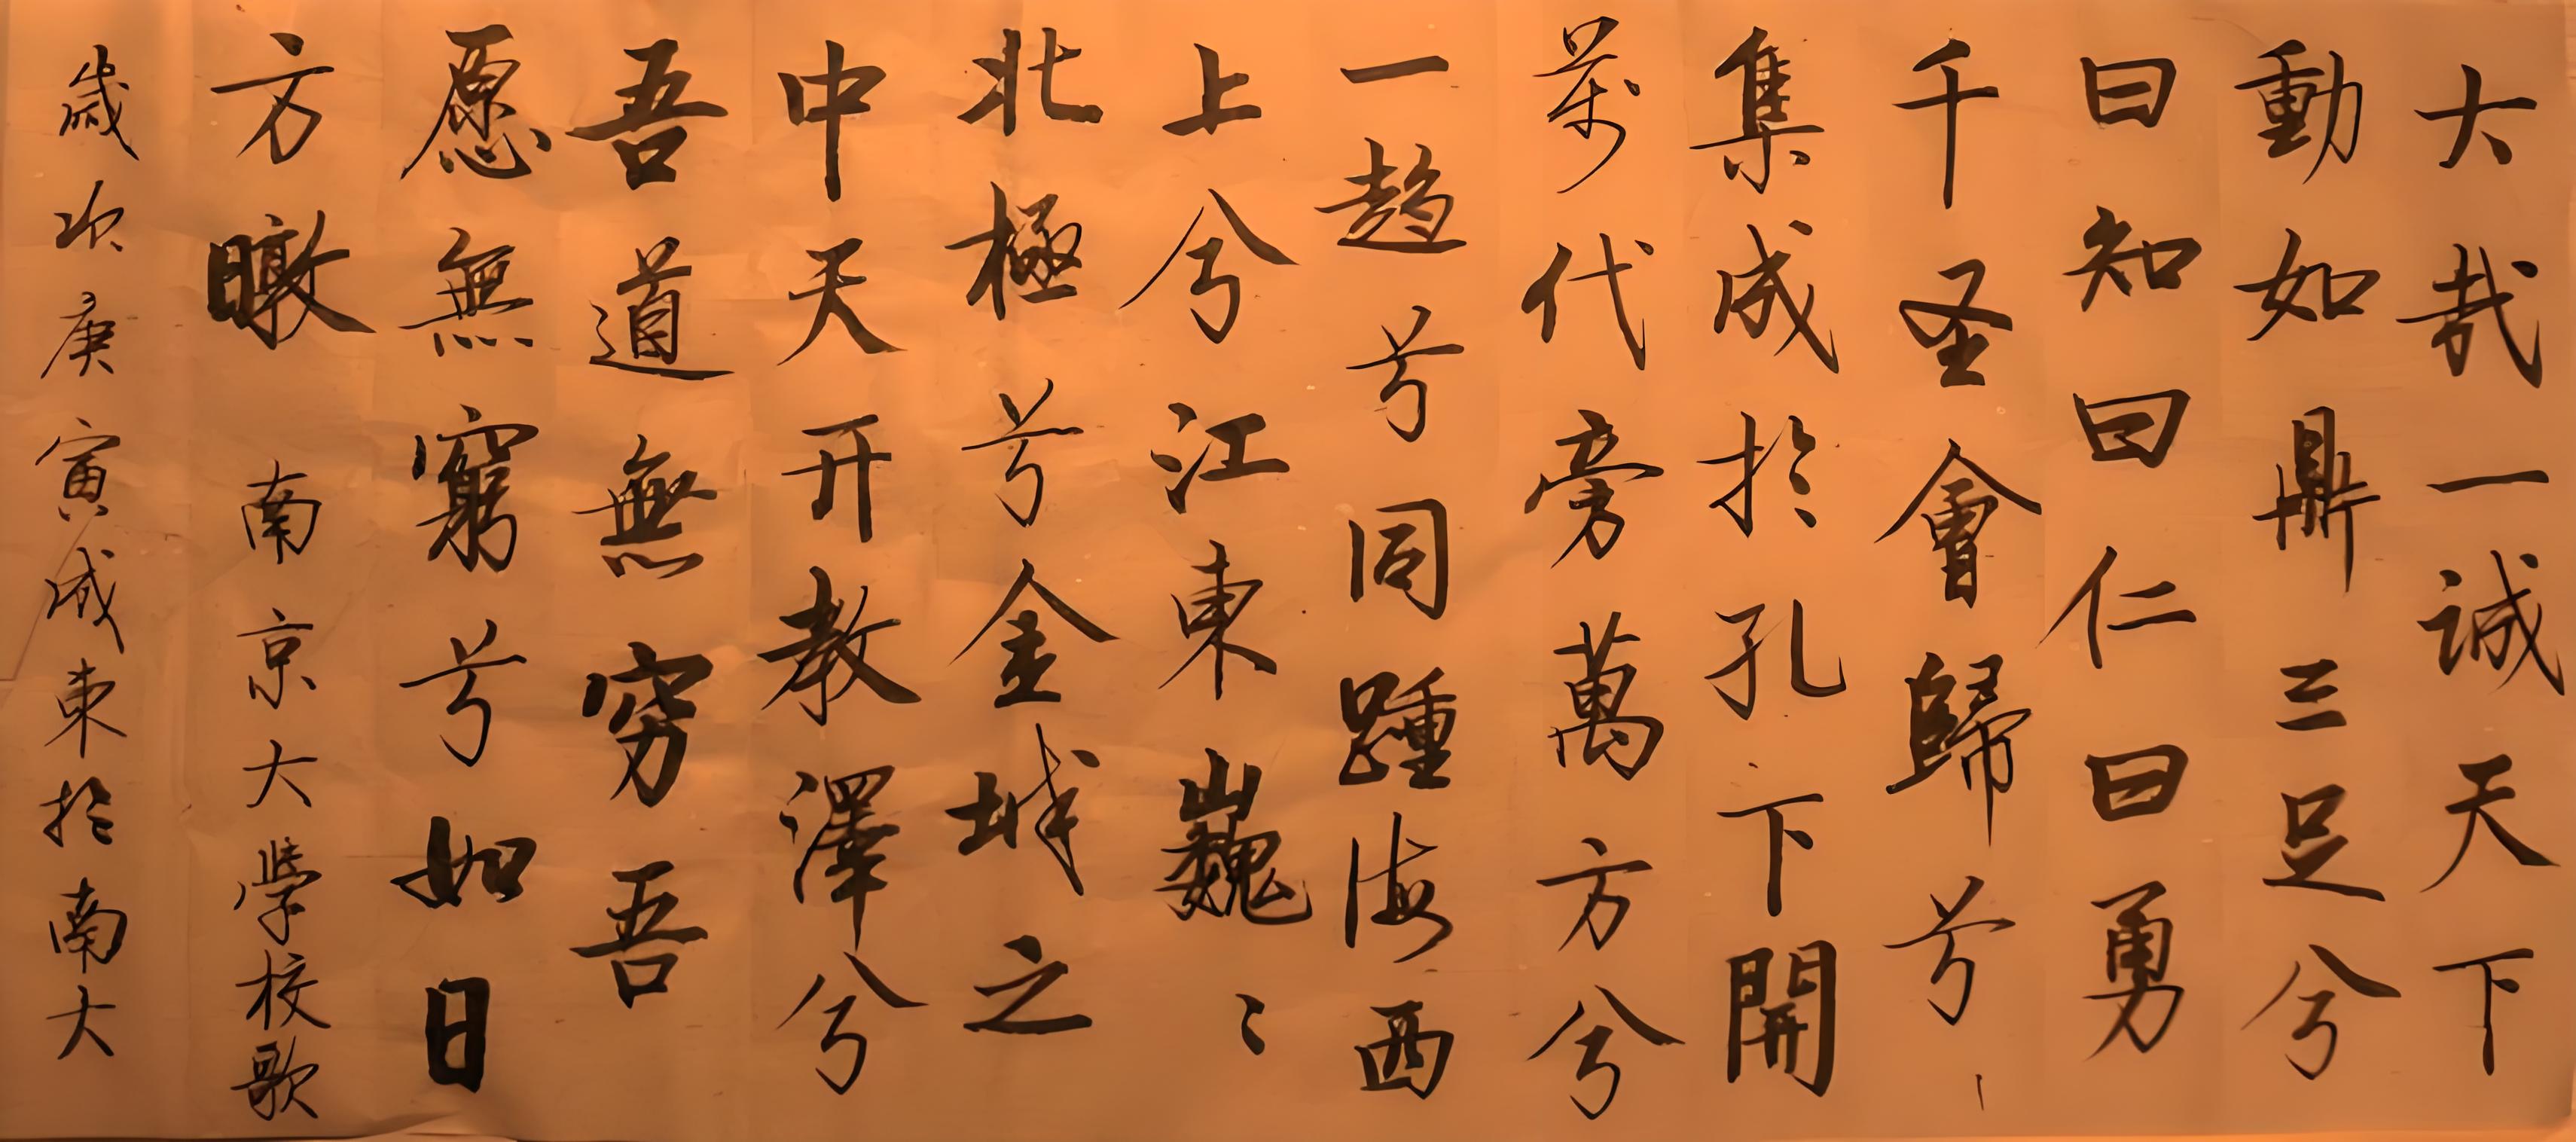 大哉一誠天下
動如鼎三足兮
曰知曰仁曰勇
千圣會歸兮
集成於孔下開
萬代旁萬方兮
一趨兮同踵海西
上兮江東巍〻
北極兮金城之
中天开教澤兮
吾道無穷吾
愿無窮兮如日
方暾 南京大學校歌
歲次庚寅東於南大